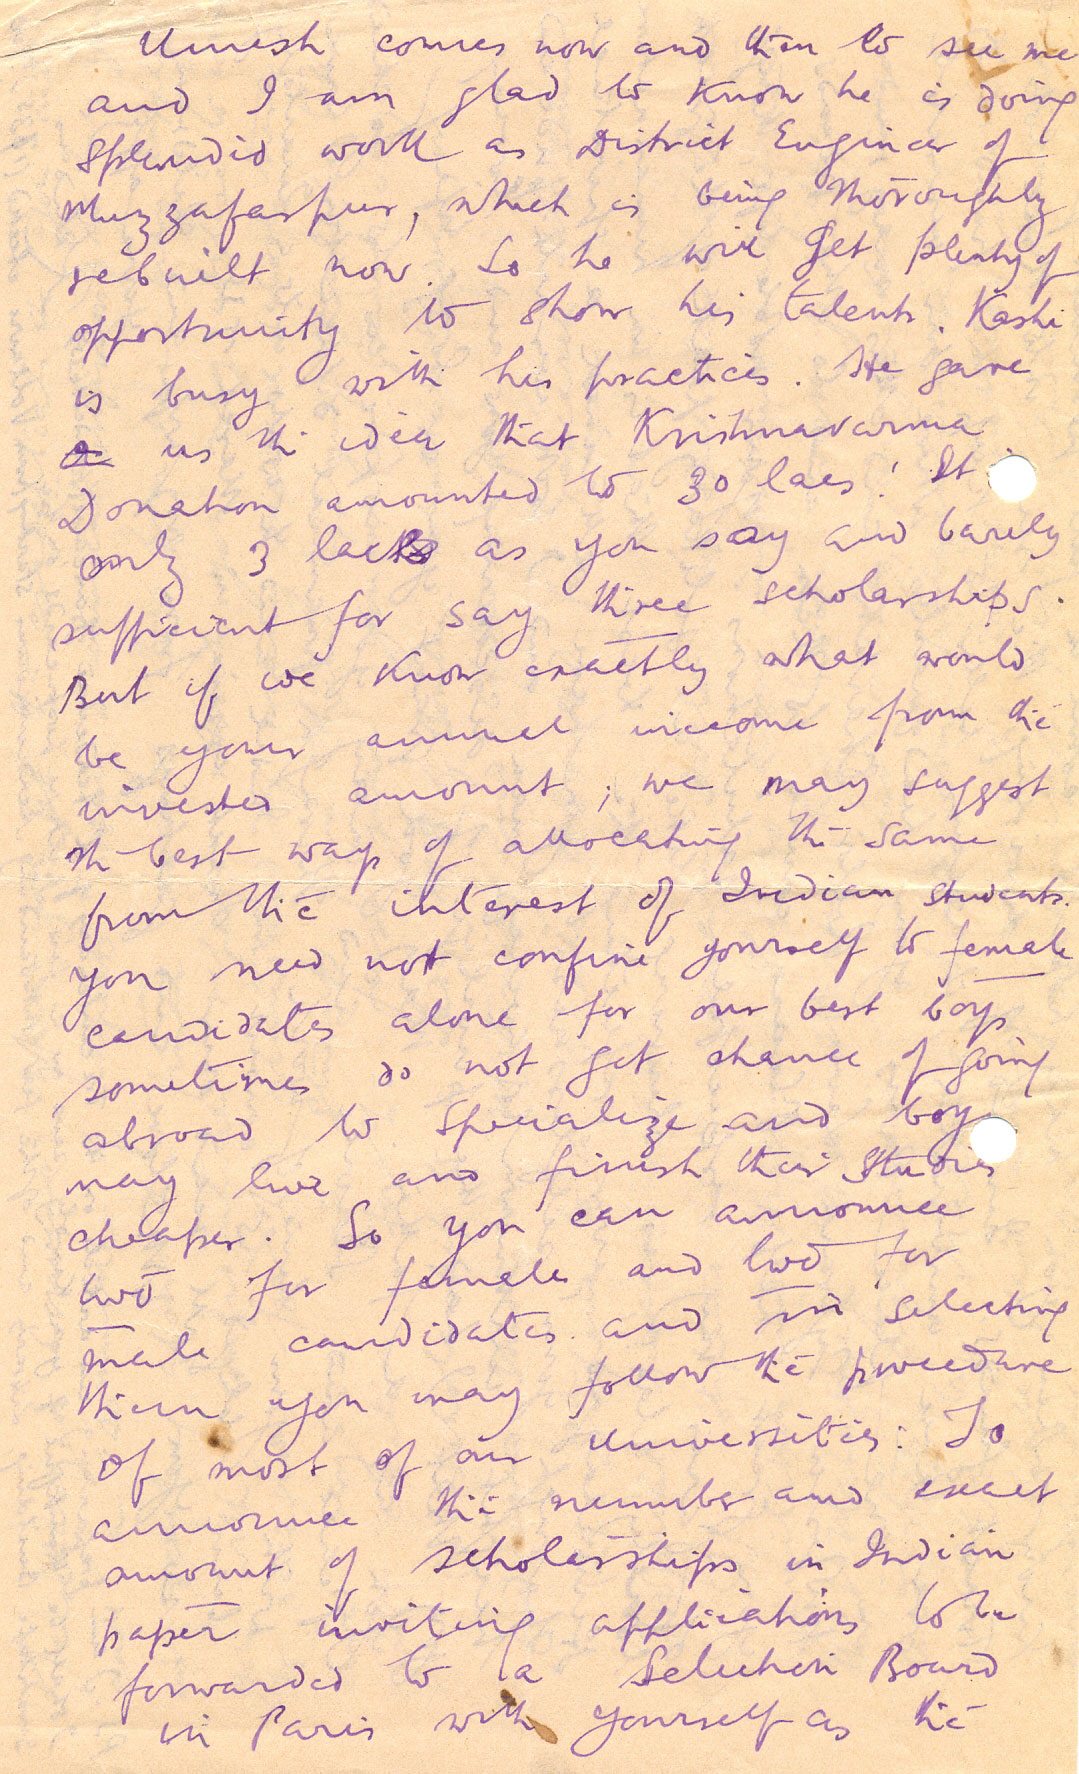 Umesh comes now and then to see me
and I am glad to know he is doing
splendid work as District Engineer of
Muzzafarpur, which is being thoroughly
rebuilt now. So he will get plenty of
opportunity to show his talents. Kashi
is busy with his practices. He gave
us the idea that Krishnavarma
Donation amounted to 30 lacs! It
only 3 lacks as you say and barely
sufficient for say three scholarships.
But if we know exactly what would
be your annual income from the
invested amount, we may suggest
the best way of allocating the same
from the interest of Indian students.
you need not confine yourself to female
candidates alone for our best boys
sometimes do not get chance of going
abroad to specialize and boys
may live and finish their studies
cheaper. So you can announce
two for female and two for
male candidates and in selecting
them you may follow the procedure
of most of our universities: To
announce the number and exact
amount of scholarships in Indian
paper inviting applications to be
forwarded to a Selection Board
in Paris with yourself as the